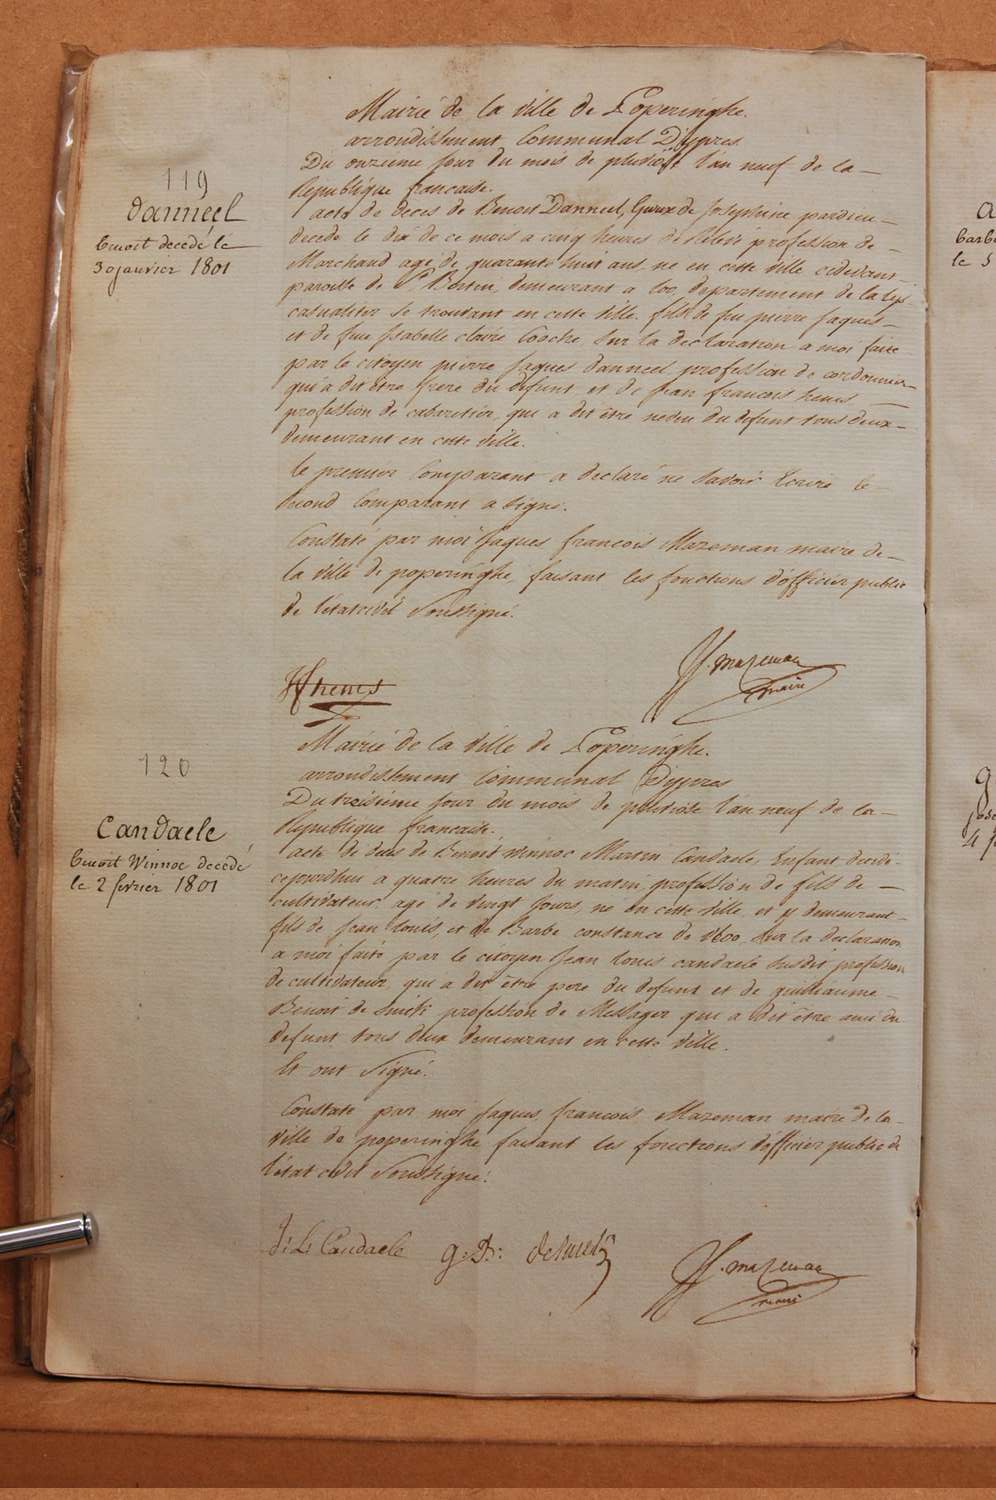 Mairie de la ville de Poperinghe.
arrondissement Communal D'ypres
Du onzieme jour du mois de pluviose l'an neuf de la
Republique francaise.
119
Danneel
benoit decedé le
30 janvier 1801
acte de deces de Benoit Danneel, Epoux de Josephine pardieu
decedé le dix de ce mois a cinq heures de relevé profession de
Marchand agé de quarante huit ans, né en cette ville cidevant
paroisse de St Bertin, demeurant a loo, departement de la Lys
casualiter se trouvant en cette ville. fils de feu pierre Jaques
et de feue Isabelle claire Cosche, sur la declaration a moi faite
par le citoyen pierre Jaques danneel profession de cordonnier
qui a dit être frere du defunt, et de jean francois henes
profession de cabaretier, qui a dit être neveu du defunt tous deux
demeurant en cette ville.
le premier Comparant a declaré ne savoir Ecrire le
second Comparant a signé.
Constaté par moi Jaques francois Mazeman maire de
la ville de poperinghe, faisant les fonctions d'officier public
de l'état civil Soussigné.
JF henes
JF. mazeman
maire
Mairie de la Ville de Poperinghe.
arrondissement Communal D'ypres
Du treisieme jour du mois de pluviose l'an neuf de la
Republique francaise.
120
Candaele
benoit Winnoc decedé
le 2 fevrier 1801
acte de deces de Benoit Winnoc Martin Candaele, Enfant decedé
cejourdhui a quatre heures du matin, profession de fils de
cultivateur, agé de vingt jours, né en cette ville, et y demeurant
fils de jean louis, et de Barbe constance de Vloo, sur la declaration
a moi faite par le citoyen Jean louis candaele susdit profession
de cultivateur, qui a dit être pere du defunt et de guillaume
Benoit de Smit profession de Messager qui a dit être ami du
defunt tous deux demeurant en cette ville.
Et ont Signé.
Constaté par moi Jaques francois Mazeman maire de la
ville de poperinghe faisant les fonctions d'officier public de
l'état civil Soussigné.
J: L: Candaele
g: B: deSmedt
JF. mazeman
maire